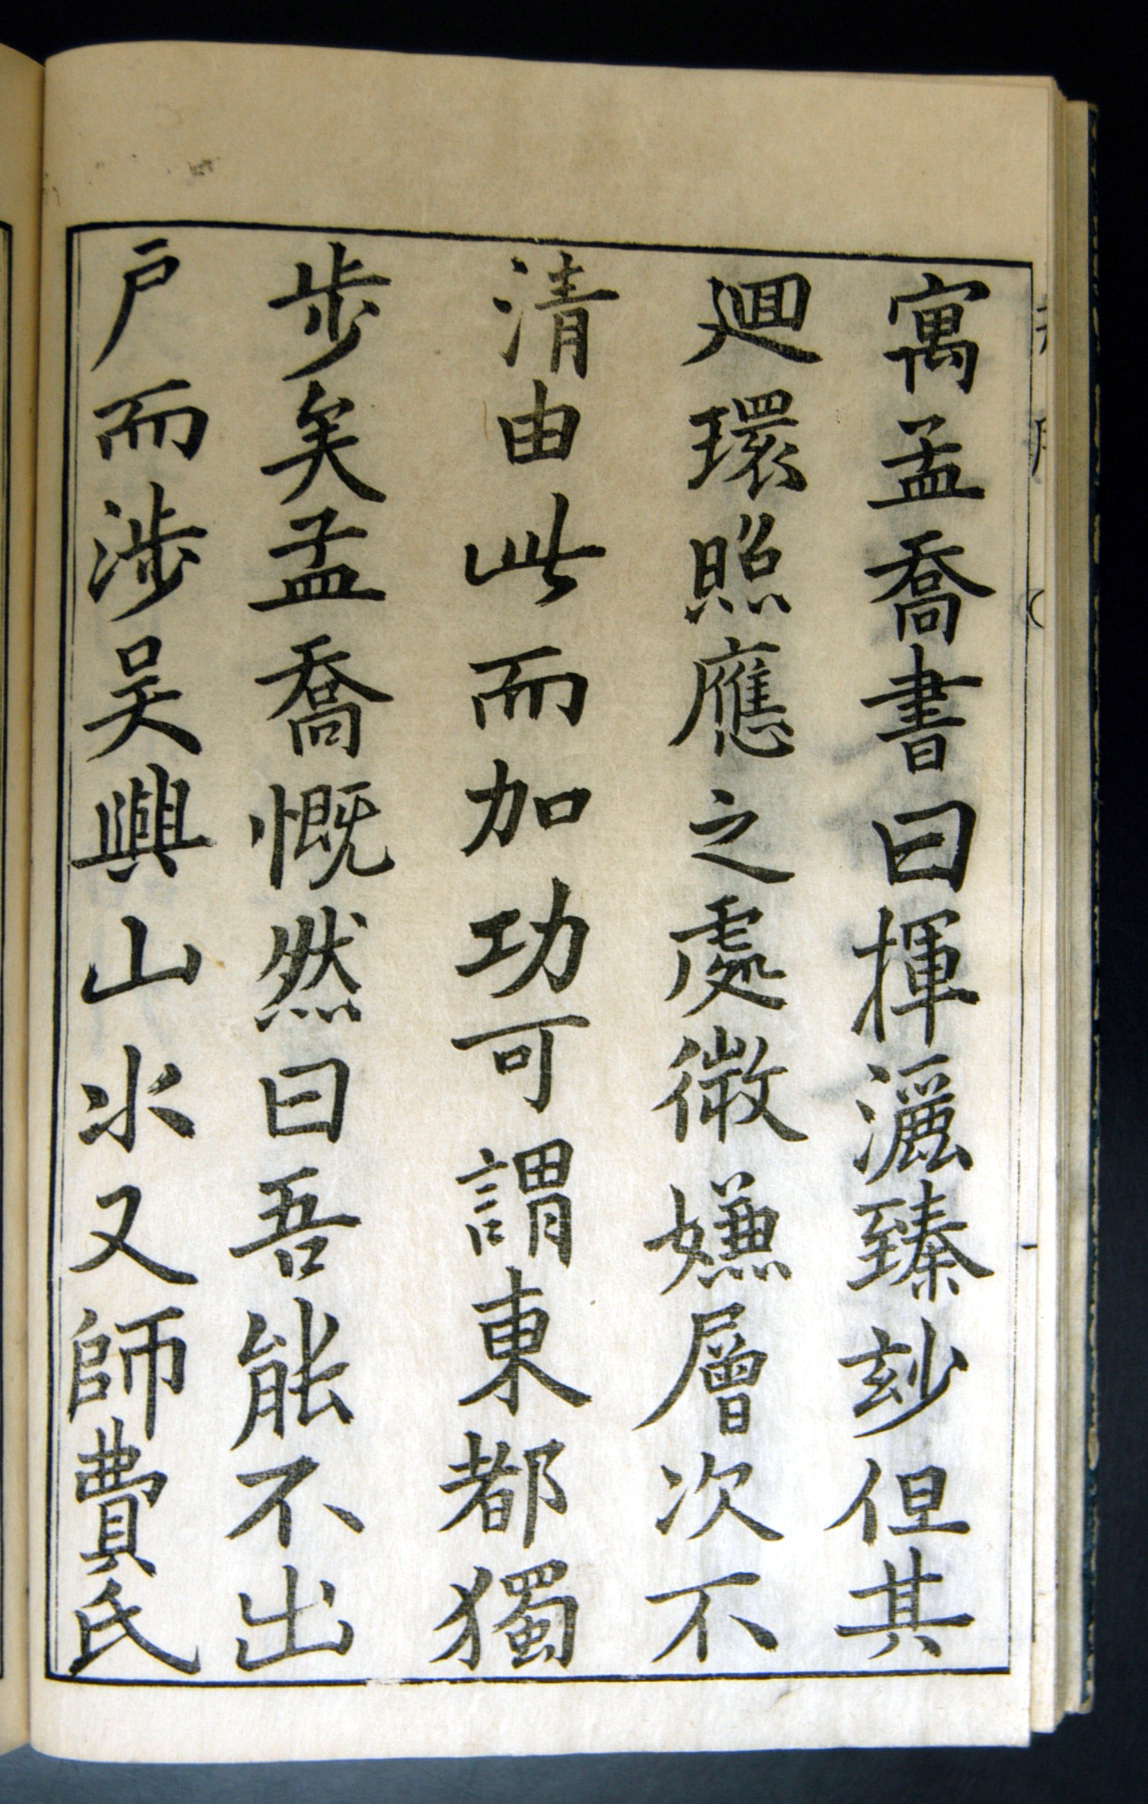 寓孟喬書曰揮灑臻玅但其
迴環照應之處微嫌層次不
清由此而加功可謂東都獨
步矣孟喬慨然曰吾能不出
戸而涉吴興山水又師費氏